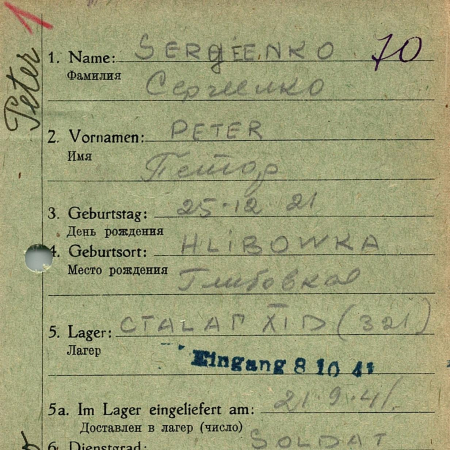 Peter 1
1. Name: SERGIENKO 70
Фамилия Сергиенко
2. Vornamen: PETER
Имя Петор
3. Geburtstag: 25·12 21
День рождения
4. Geburtsort: HLIBOWKA
Место рождения Глибовкая
5. Lager: СТАLАГ XI D (321)
Лагер
Eingang 8 10 41
5a. Im Lager eingeliefert am: 21·9·41.
Доставлен в лагер (число)
6. Dienstgrad: SOLDAT